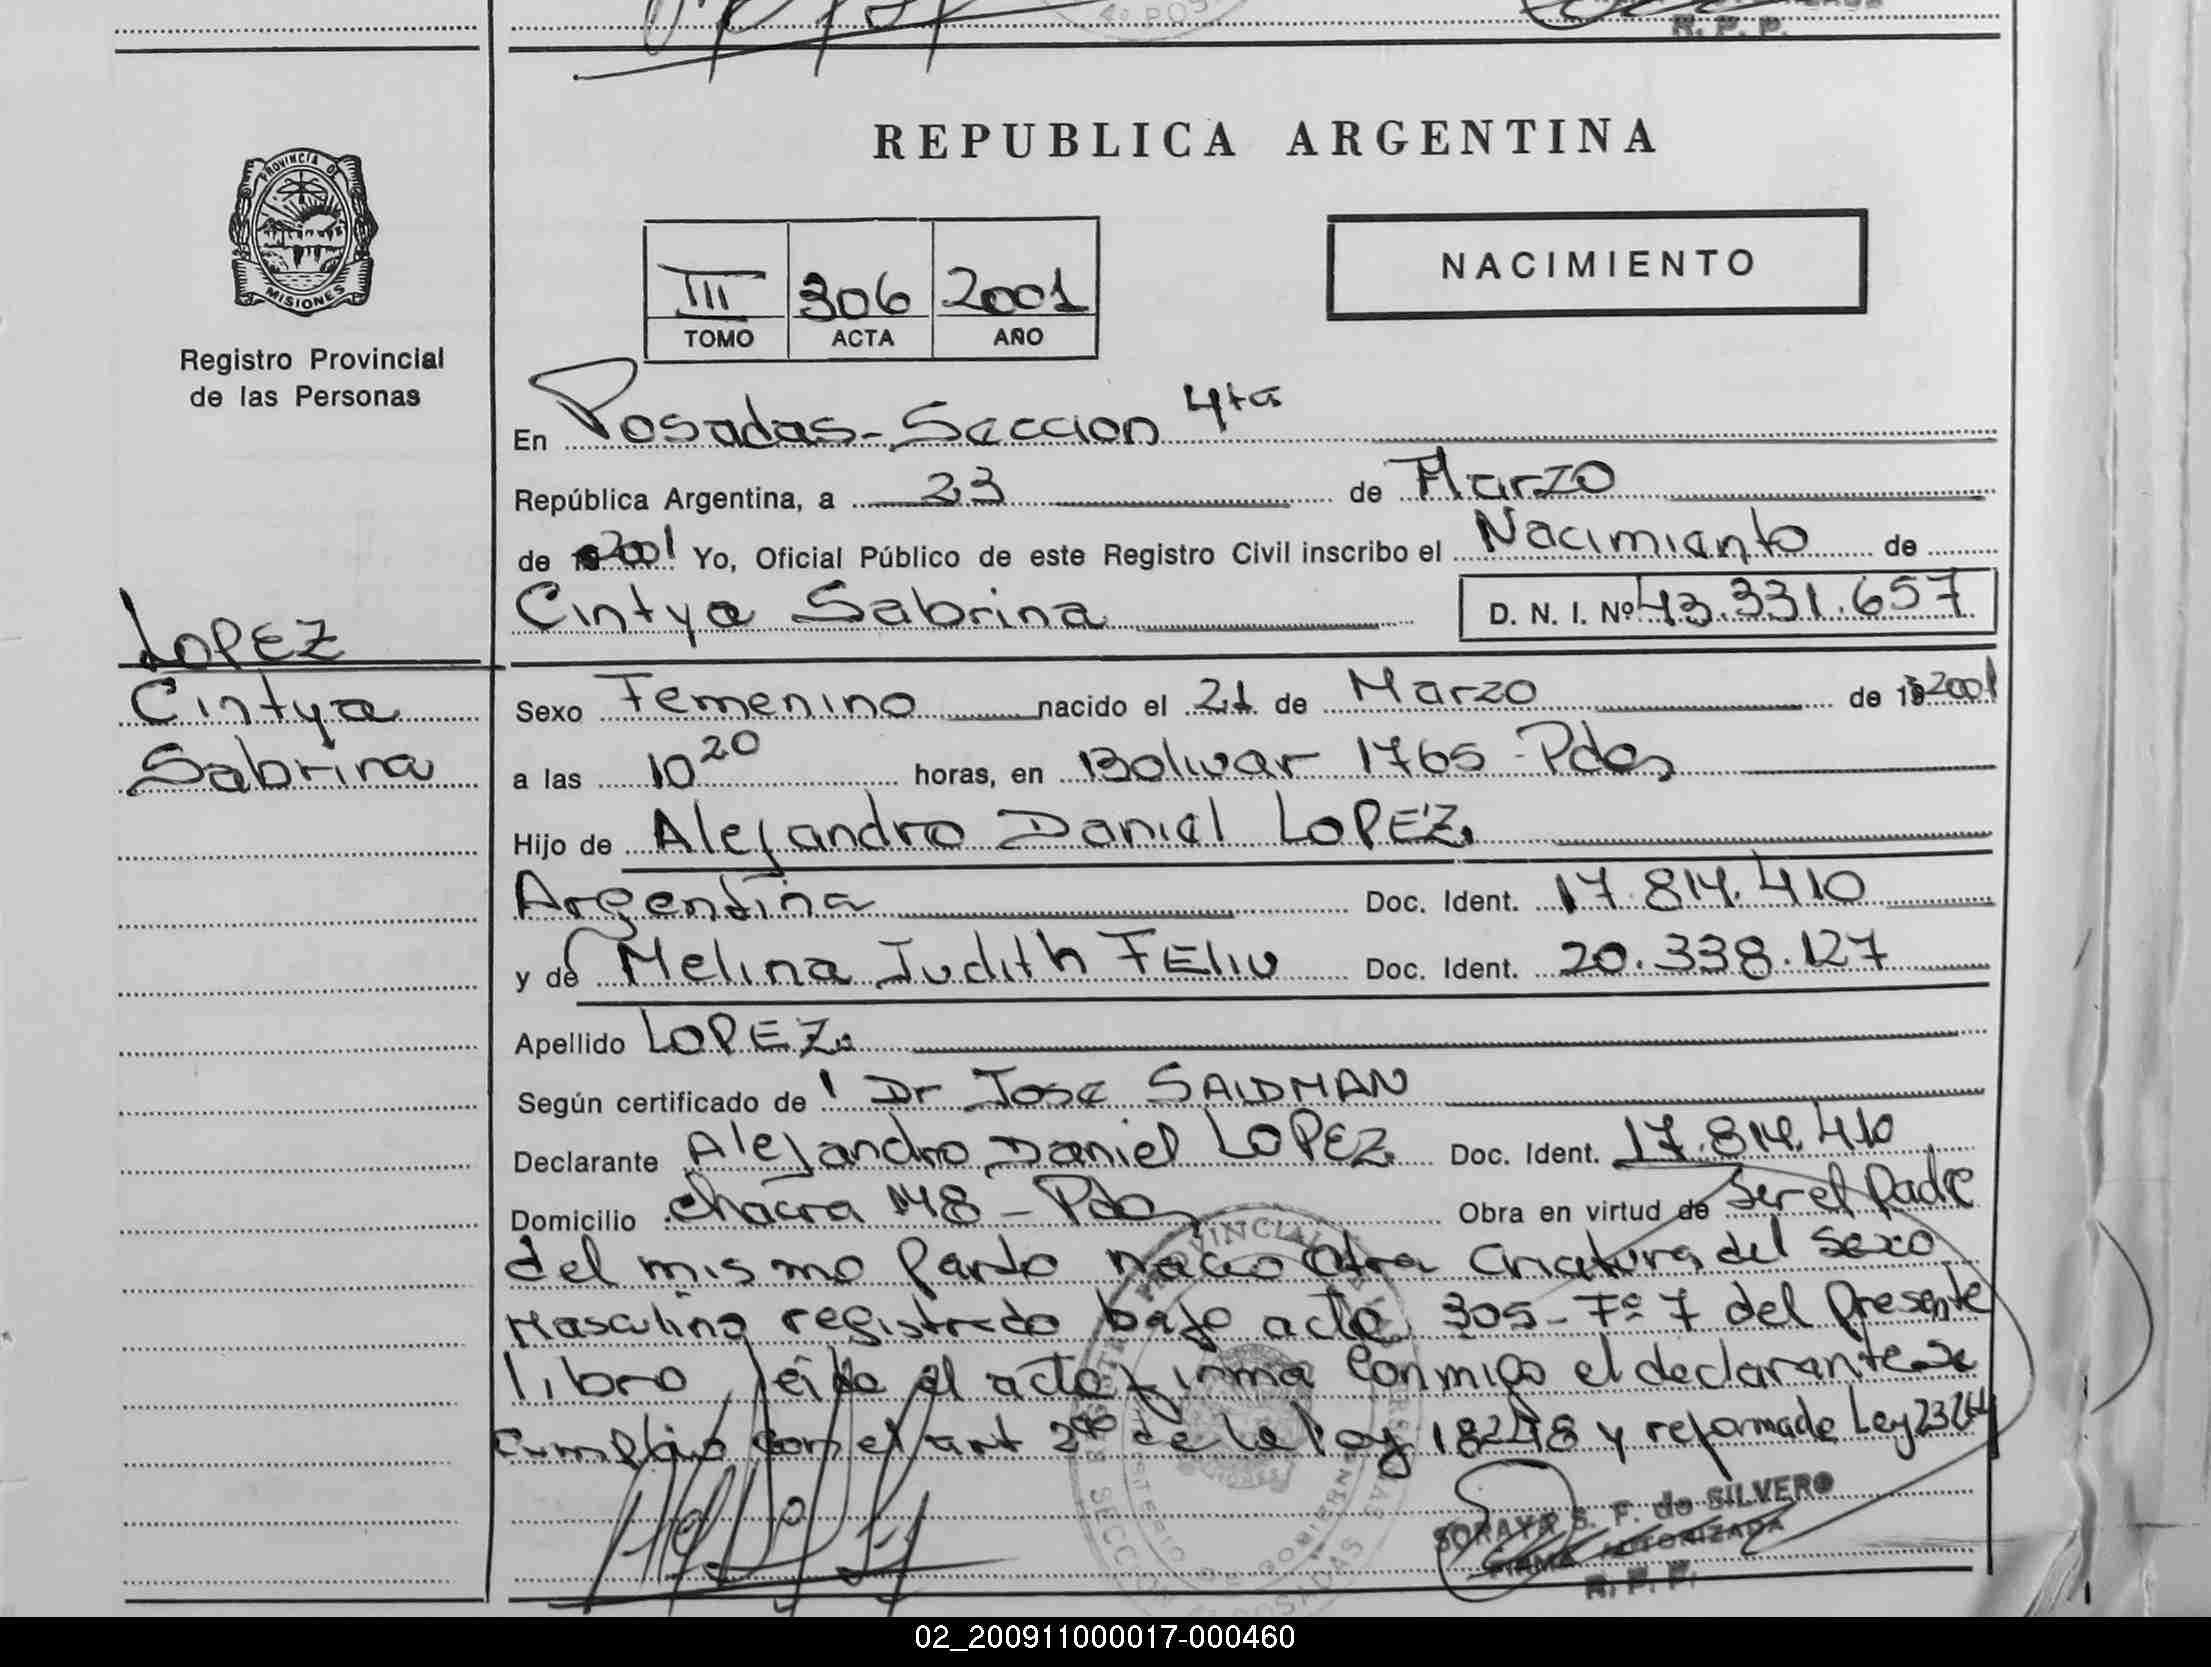 R. P. P.
REPUBLICA ARGENTINA
PROVINCIA DE
MISIONES
Registro Provincial
de las Personas
III 306 2001
TOMO ACTA AÑO
NACIMIENTO
En Posadas - Seccion 4ta
República Argentina, a 23 de Marzo
de 2001 Yo, Oficial Público de este Registro Civil inscribo el Nacimiento de
Cintya Sabrina D. N. I. Nº 43.331.657
LOPEZ
Cintya
Sabrina
Sexo Femenino nacido el 21 de Marzo de 2001
a las 10 20 horas, en Bolivar 1765 - Pdas
Hijo de Alejandro Daniel LOPEZ
Argentina Doc. Ident. 17.814.410
y de Melina Judith FELIU Doc. Ident. 20.338.127
Apellido LOPEZ
Según certificado de Dr Jose SAIDMAN
Declarante Alejandro Daniel LOPEZ Doc. Ident. 17.814.410
Domicilio chacra 148 - Pdas Obra en virtud de ser el padre
del mismo parto nacio otra criatura del sexo
Masculino registrado bajo acta 305 - Tº 7 del presente
libro leida el acta firma conmigo el declarante se
cumplio con el art 2do de la ley 18248 y reformade Ley 23264
SORAYA S. F. de SILVERO
FIRMA AUTORIZADA
R. P. P.
02_200911000017-000460